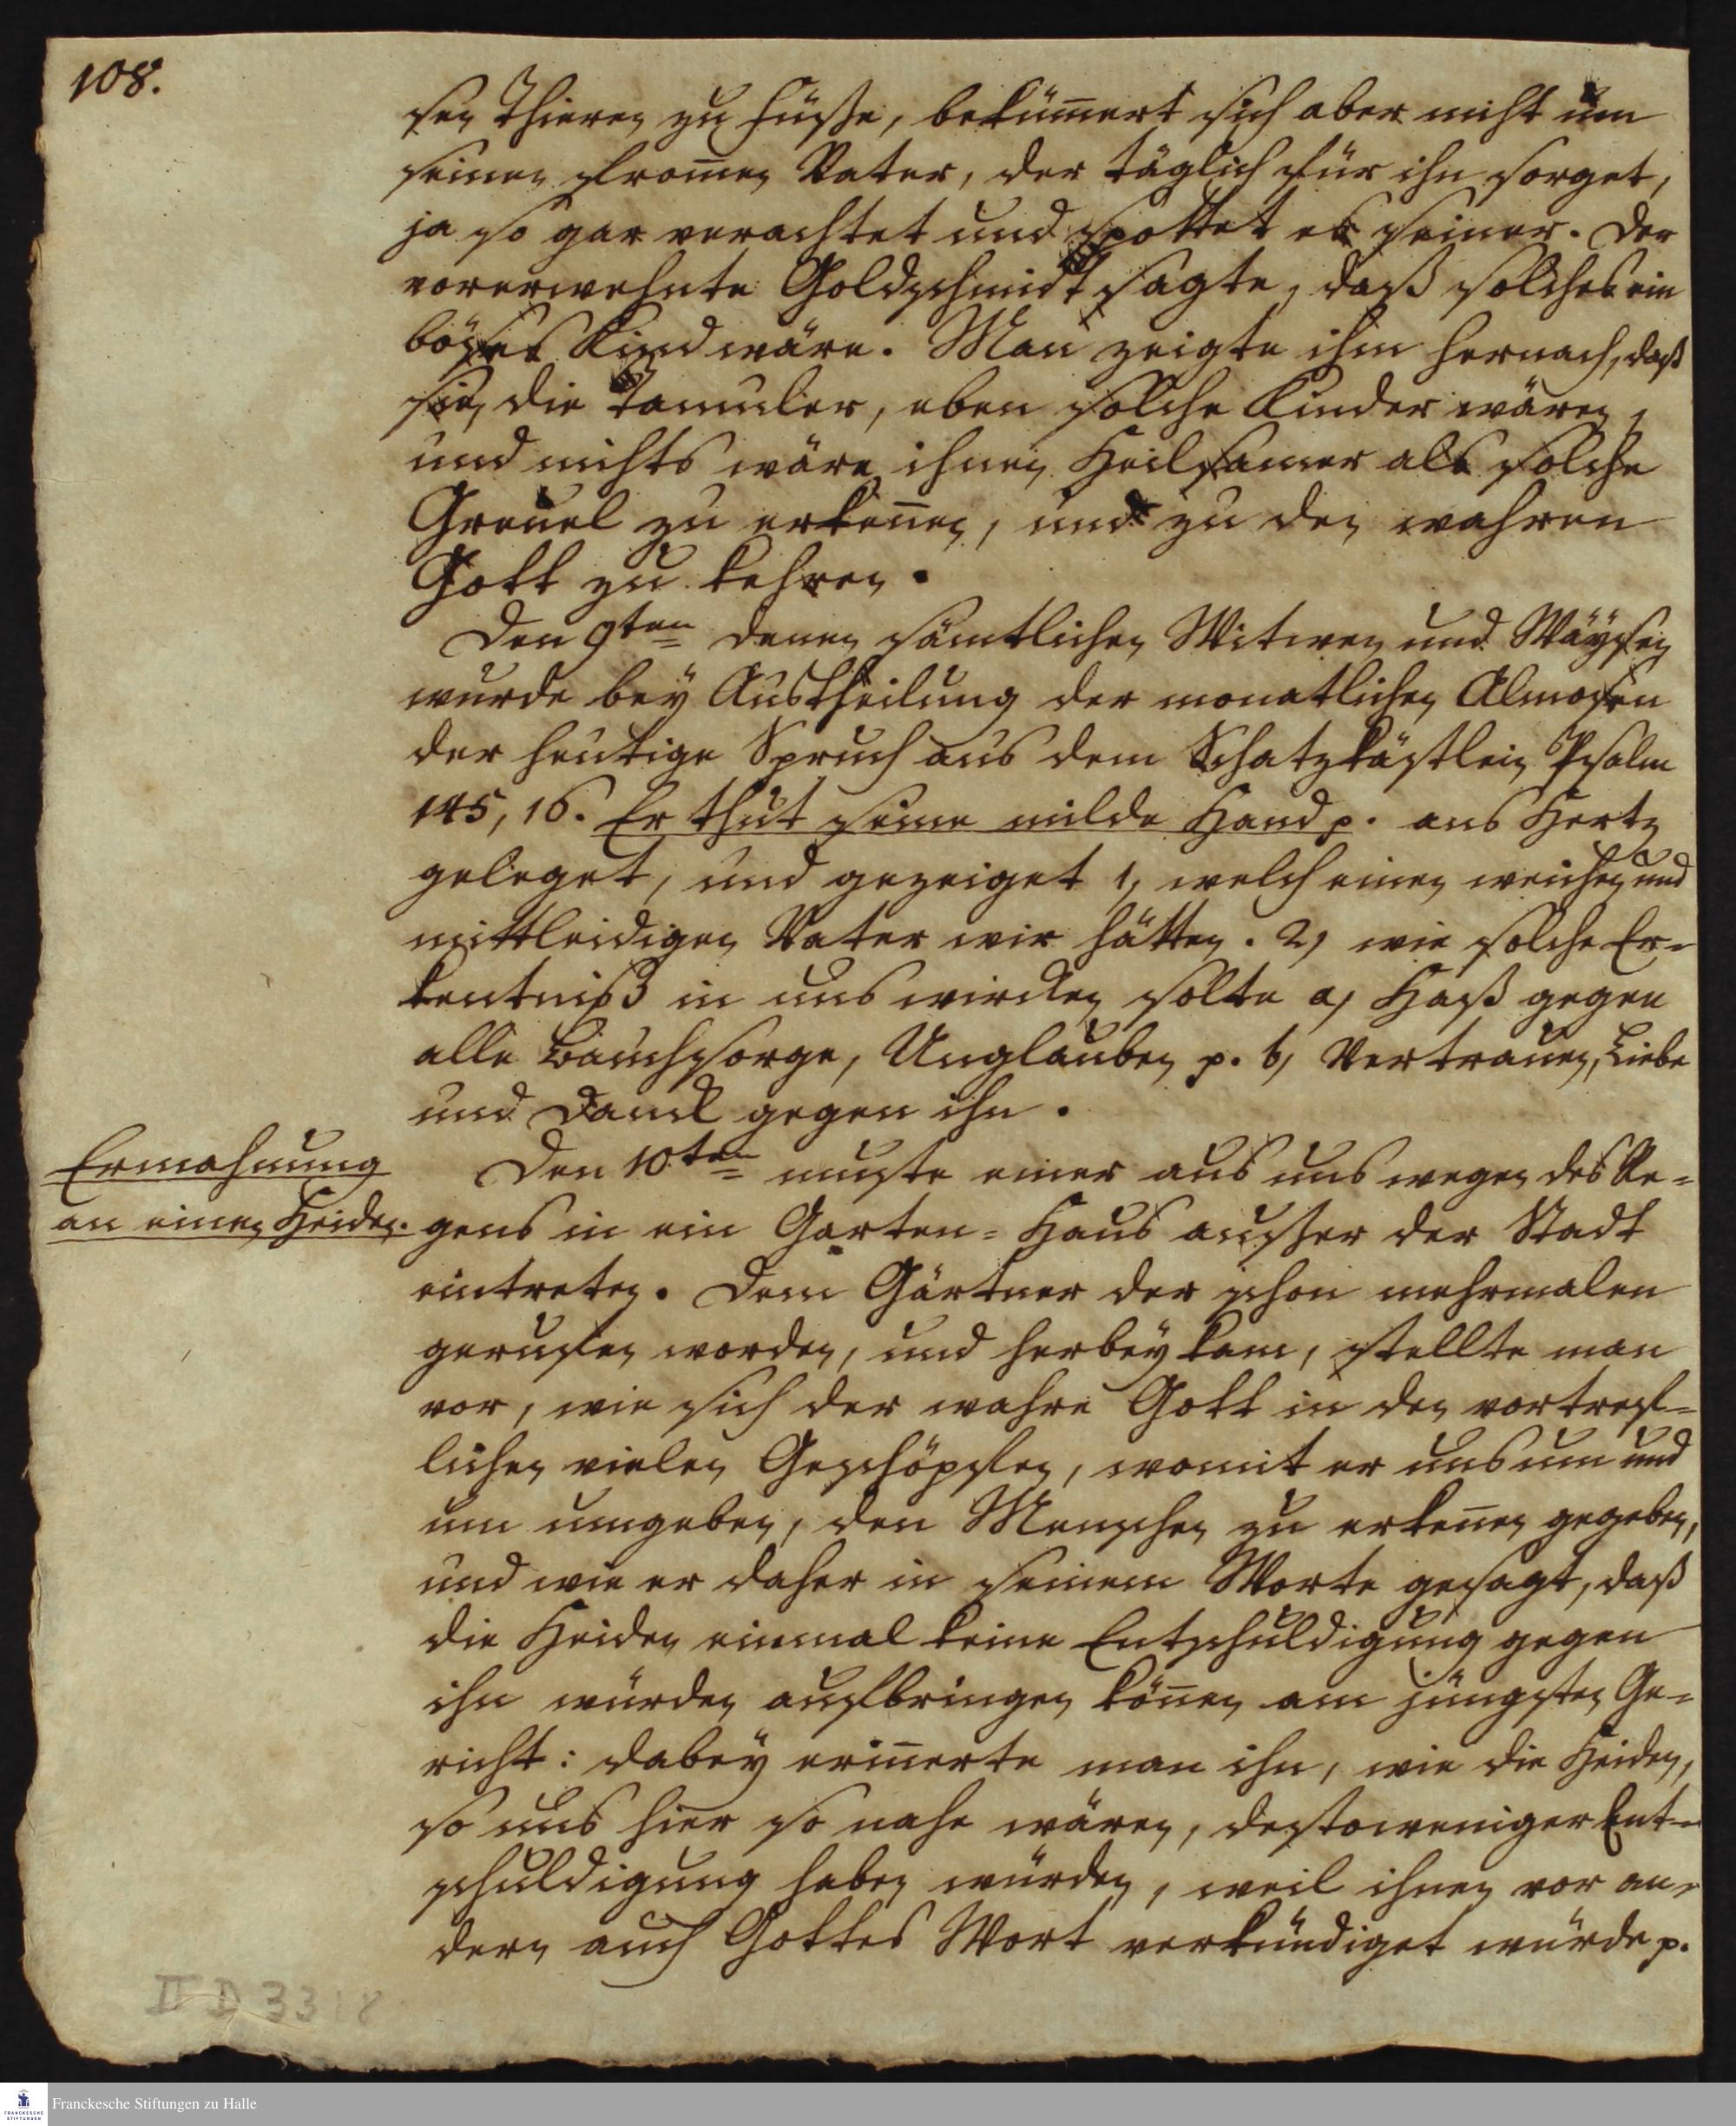 108.
sen Thieren zu Füsse, bekum̄ert sich aber nicht um
seinen from̄en Vater, der täglich für ihn sorget,
ja so gar verachtet und spottet er seiner. Der
vorerwehnte Goldschmidt sagte, daß solches ein
böses Kind wäre. Man zeigte ihm hernach, daß
sie, die Tamuler, eben solche Kinder wären,
und nichts wäre ihnen heilsamer als solche
Greuel zu erken̄en, und zu den wahren
Gott zu kehren.
Den 9ten denen sämtlichen Witwen und Wäysen
wurde bey Austheilung der monatlichen Almosen
der heutige Spruch aus dem Schatzkästlein Psalm
145, 16. Er thut seine milde Hand p. ans Hertz
geleget, und gezeiget 1, welch einen weichen und
mittleidigen Vater wir hätten. 2, wie solche Er=
kentniß in uns wircken solte a, Haß gegen
alle Bauchsorge, Unglauben p. b, Vertrauen, Liebe
und Danck gegen ihn.
Ermahnung
an einen Heiden.
Den 10ten muste einer aus uns wegen des Re=
gens in ein Garten=Haus ausser der Stadt
eintreten. Dem Gärtner der schon mehrmalen
gerufen worden, und herbey kam, stellte man
vor, wie sich der wahre Gott in den vortref=
lichen vielen Geschöpfen, womit er uns um und
um umgeben, den Menschen zu erken̄en gegeben,
und wie er daher in seinem Worte gesagt, daß
die Heiden einmal keine Entschuldigung gegen
ihn würden aufbringen kön̄en am jüngsten Ge=
richt: dabey erin̄erte man ihn, wie die Heiden,
so uns hier so nahe wären, destoweniger Ent=
schuldigung haben würden, weil ihnen vor an=
dern auch Gottes Wort verkündiget würde p.
II D 33 18
Franckesche Stiftungen zu Halle
FRANCKESCHE
STIFTUNGEN